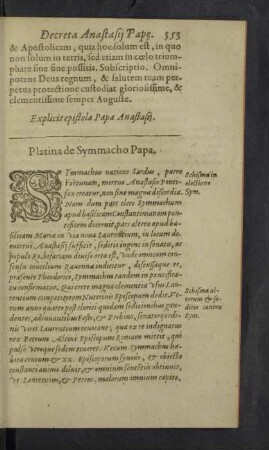 Decreta Anastasij Papę. 553
& Apostolicam, quia hoc solum est, in quo
non solum in terris, sed etiam in cœlo trium-
phare sine fine possitis. Subscriptio. Omni-
potens Deus regnum, & salutem tuam per-
petua protectione custodiat gloriosissime, &
clementissime semper Auguste.
Explicit epistola Papa Anastasij.
Platina de Symmacho Papa.
SYmmachus natione Sardus, patre
Fortunato, mortuo Anastasio Ponti-
fex creatur, non sine magna discordia.
Nam dum pars cleri Symmachum
apud basilicam Constantinianam pon-
tificem decernit, pars altera apud ba-
silicam Mariæ in via nova Laurentium, in locum de-
mortui Anastasij sufficit, seditio ingens in senatu, ac
populi Ro. bifariam diviso orta est, Unde omnium con-
sensu concilium Ravennæ indicitur, discussaque re,
præsente Theodorico, Symmachus tandem in pontifica-
tu confirmatur. Qui certe magna clementia usus Lau-
rentium competitorem Nucerino Episcopum dedit. Ve-
rum anno quarto post clerici quidam seditionibus gau-
dentes, adiuvantibus Festo, & Probino, senatorij ordi-
nis viris Laurentium revocant, qua ex re indignatus
rex Petrum Altini Episcopum Romam mittit, qui
pulso utroque sedem teneret. Verum Symmachus ha-
bita centum & XX. Episcoporum synodo, & obiecta
constanti animo diluit, & omnium sententijs obtinuit,
ut Laurentius, & Petrus, malorum omnium capita,
Schisma in
electione
Sym.
Schisma al-
terum & se-
ditio contra
Sym.